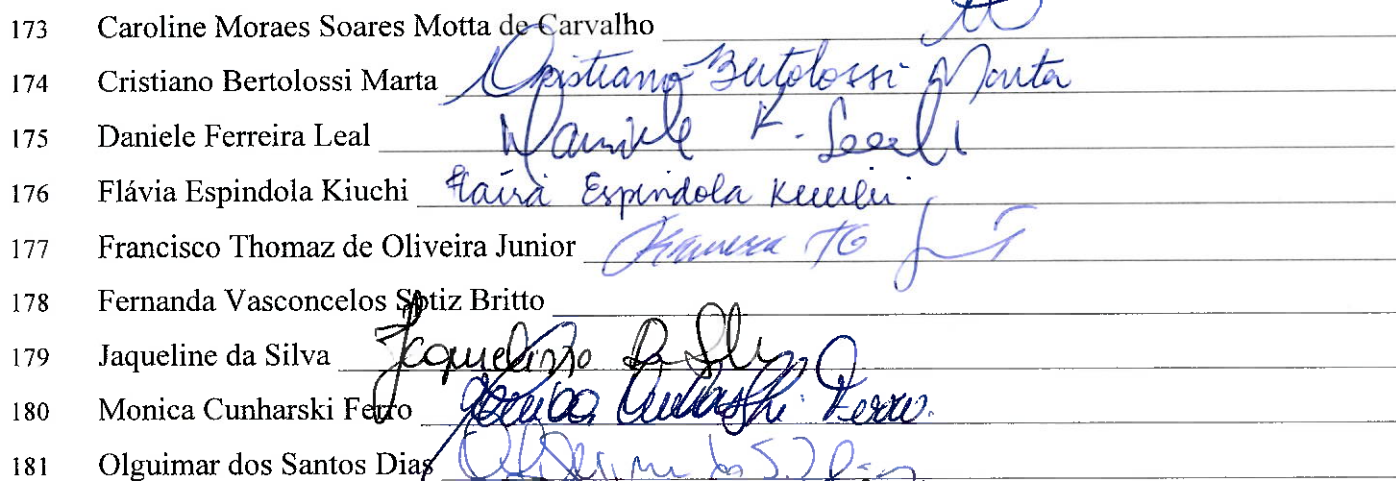 173 Caroline Moraes Soares Motta de Carvalho
174 Cristiano Bertolossi Marta Cristiano Bertolossi Marta
175 Daniele Ferreira Leal Daniele F. Leal
176 Flávia Espindola Kiuchi Flávia Espindola Kiuchi
177 Francisco Thomaz de Oliveira Junior
178 Fernanda Vasconcelos Sotiz Britto
179 Jaqueline da Silva Jaqueline da Silva
180 Monica Cunharski Ferro Monica Cunharski Ferro.
181 Olguimar dos Santos Dias